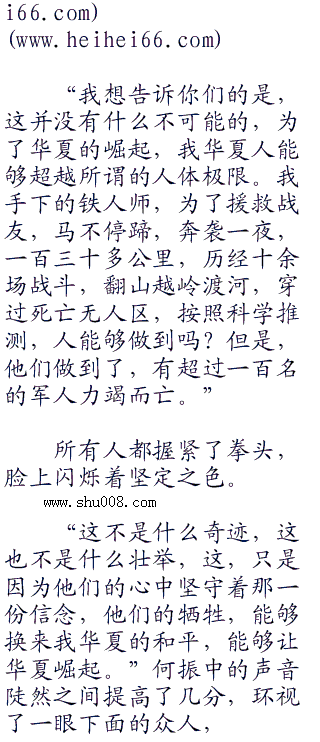 i66.com)
(www.heihei66.com)
“我想告诉你们的是，
这并没有什么不可能的，为
了华夏的崛起，我华夏人能
够超越所谓的人体极限。我
手下的铁人师，为了援救战
友，马不停蹄，奔袭一夜，
一百三十多公里，历经十余
场战斗，翻山越岭渡河，穿
过死亡无人区，按照科学推
测，人能够做到吗？但是，
他们做到了，有超过一百名
的军人力竭而亡。”
所有人都握紧了拳头，
脸上闪烁着坚定之色。
www.shu008.com
“这不是什么奇迹，这
也不是什么壮举，这，只是
因为他们的心中坚守着那一
份信念，他们的牺牲，能够
换来我华夏的和平，能够让
华夏崛起。”何振中的声音
陡然之间提高了几分，环视
了一眼下面的众人，